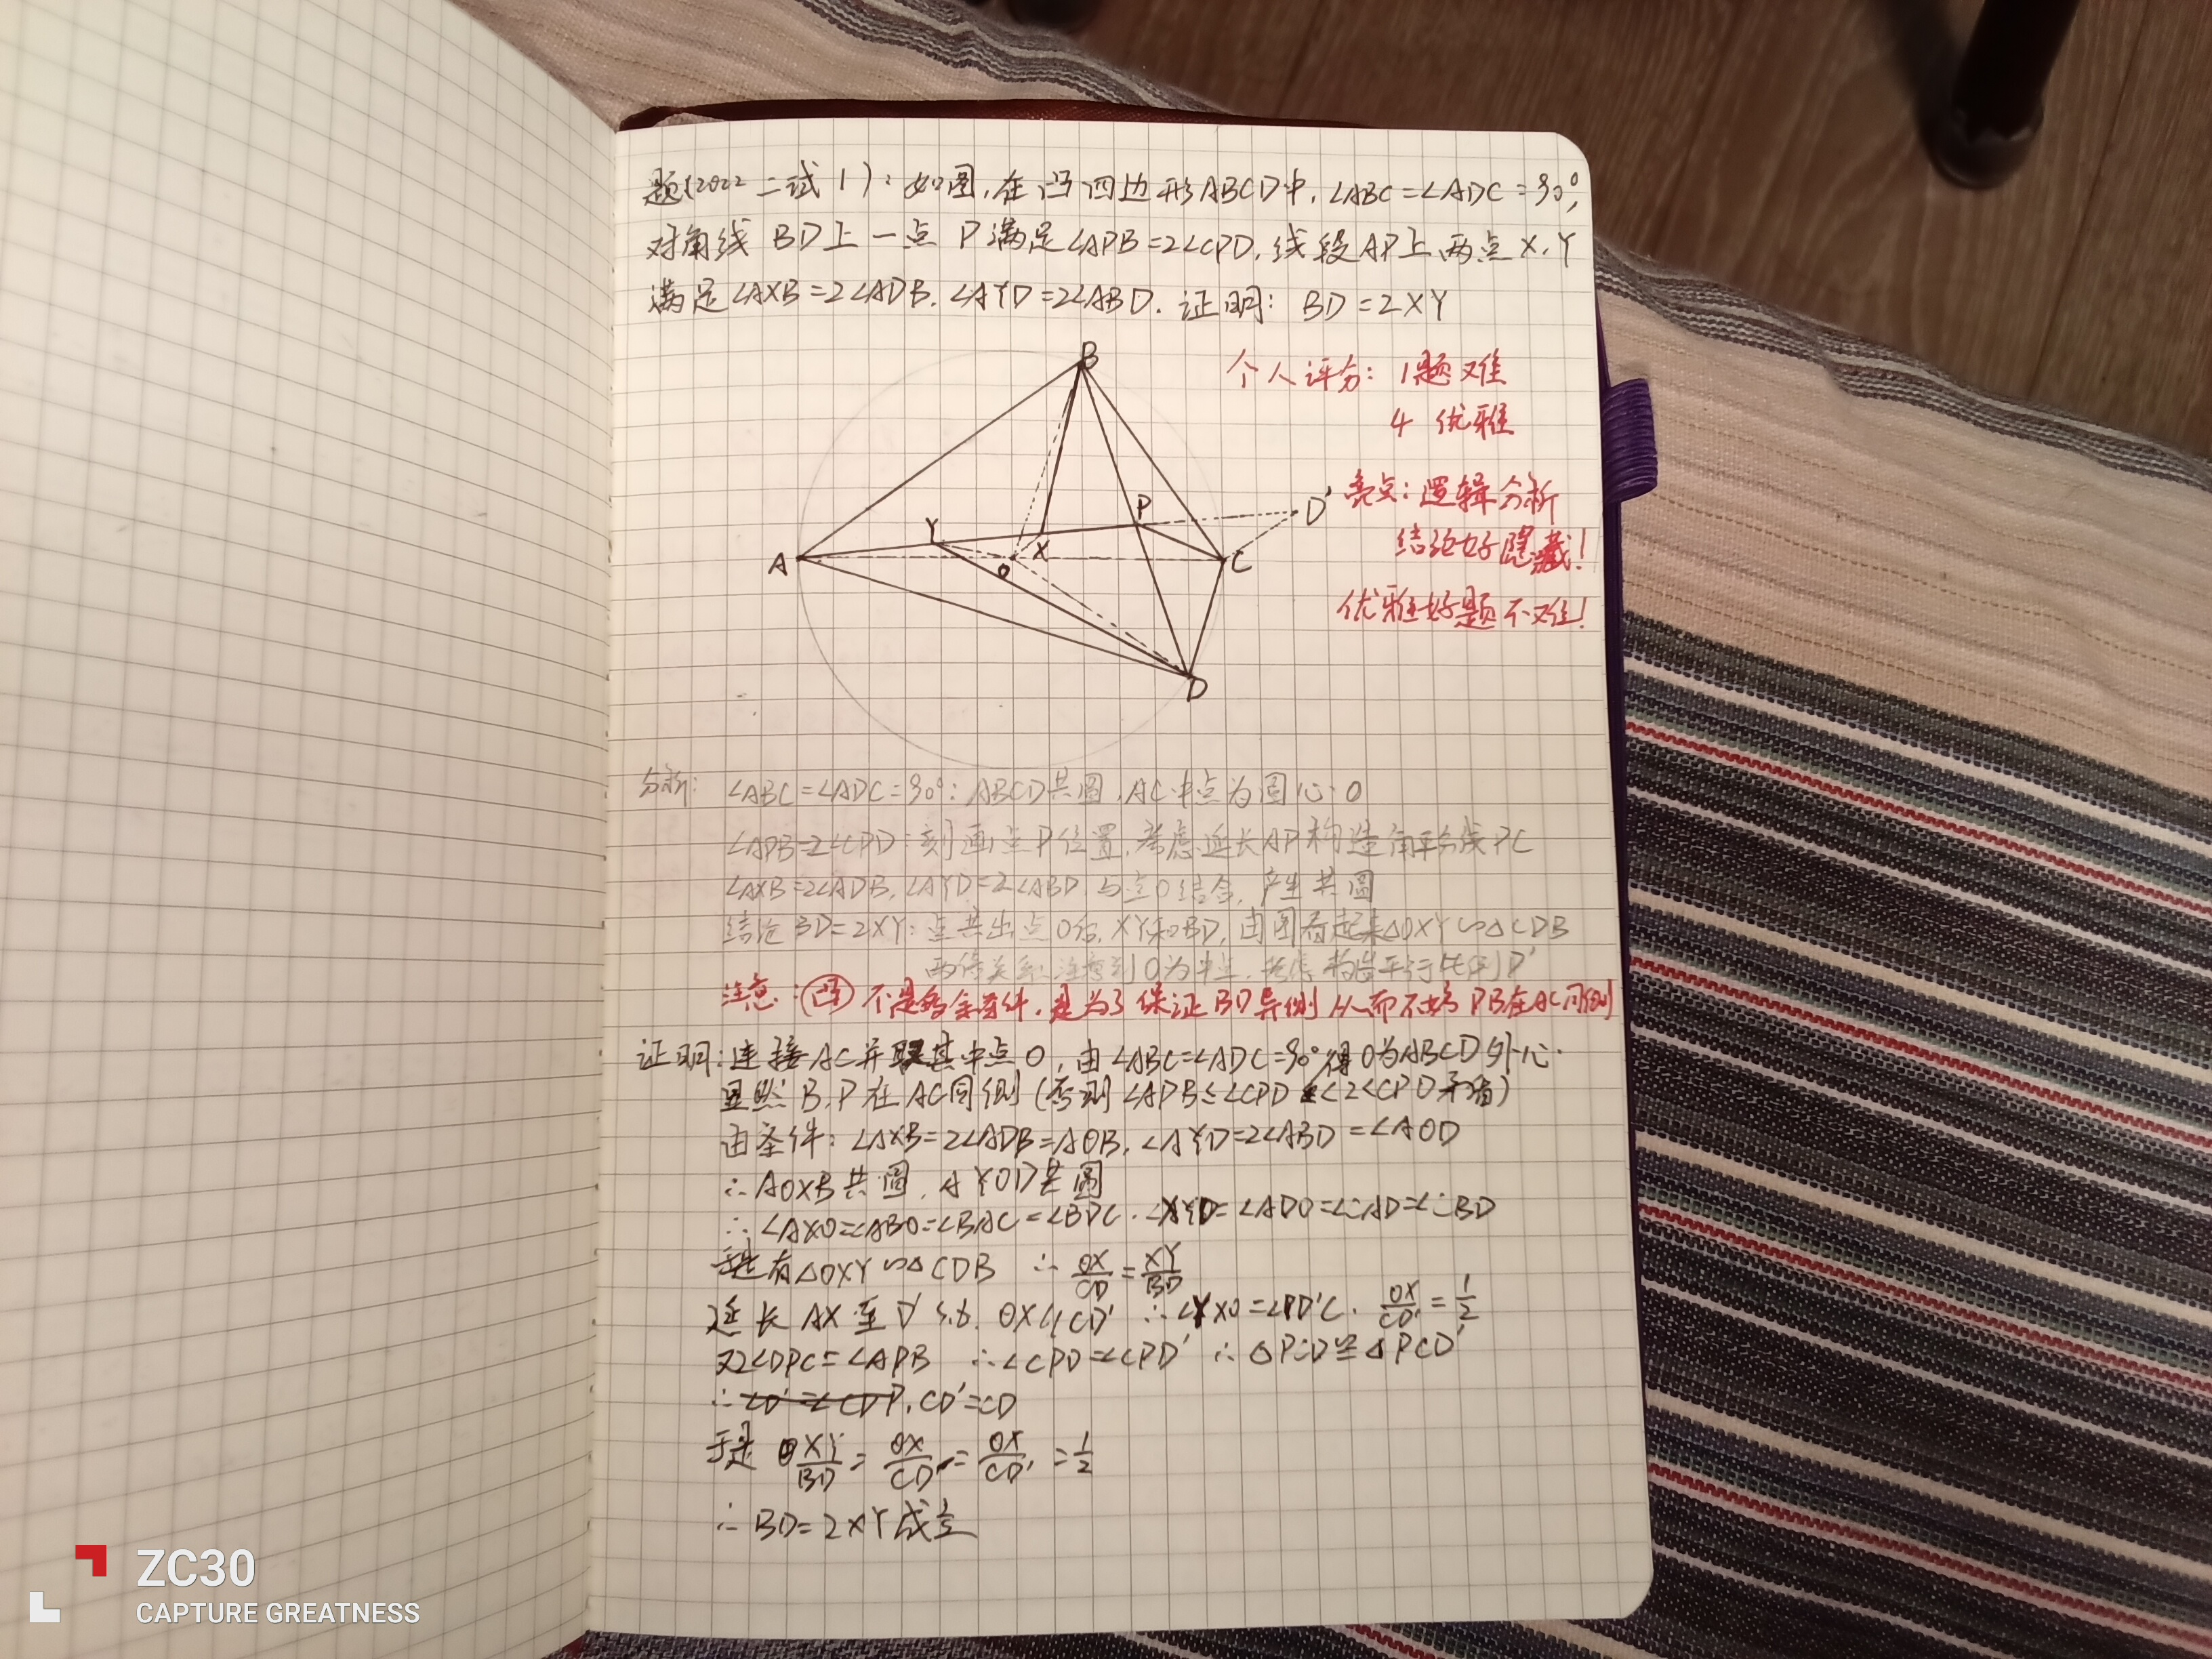 题(2022 二试 1): 如图,在凸四边形ABCD中,∠ABC=∠ADC=90°,
对角线 BD上一点 P满足∠APB=2∠CPD,线段AP上两点X,Y
满足∠AXB=2∠ADB,∠AYD=2∠ABD. 证明: BD=2XY
B
个人评分: 1题难
4 优雅
D'
亮点:逻辑分析
P
Y
结论好隐藏!
A
O
X
C
优雅好题不难!
D
分析: ∠ABC=∠ADC=90°: ABCD共圆,AC中点为圆心O
∠APB=2∠CPD:刻画点P位置,考虑延长AP构造角平分线PC
∠AXB=2∠ADB,∠AYD=2∠ABD 与点O结合,产生共圆
结论BD=2XY: 点共出点O后,XY和BD,由图看起来△OXY∽△CDB
两倍关系:注意到O为中点,考虑构造平行线段D'
注意:凸不是多余条件,是为了保证BD异侧从而不妨PB在AC同侧
证明:连接AC并取其中点O,由∠ABC=∠ADC=90°得O为ABCD外心.
显然B,P在AC同侧(否则∠APB≤∠CPD<2∠CPD矛盾)
由条件:∠AXB=2∠ADB=AOB,∠AYD=2∠ABD=∠AOD
∴AOXB共圆,AYOD共圆
∴∠AXO=∠ABO=∠BAC=∠BDC.∠XYD=∠ADO=∠CAD=∠CBD
于是有△OXY∽△CDB ∴OX/CD=XY/BD
延长AX至D' s.t. OX∥CD' ∴∠YXO=∠PD'C. OX/CD'=1/2
又2∠DPC=∠APB ∴∠CPD=∠CPD' ∴△PCD≌△PCD'
∴∠D'=∠CDP,CD'=CD
于是 XY/BD=OX/CD=OX/CD'=1/2
∴BD=2XY成立
ZC30
CAPTURE GREATNESS